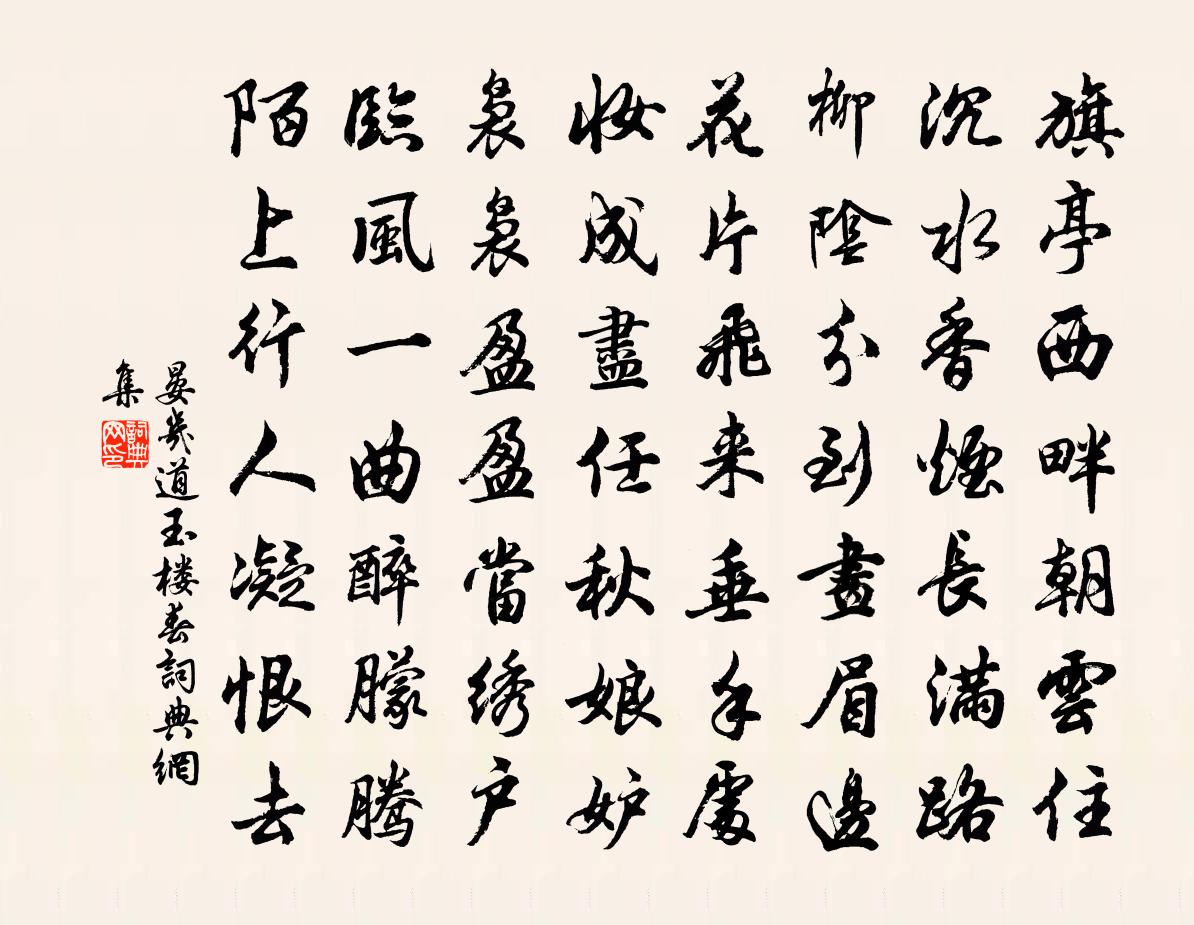 旗亭西畔朝雲住
沉水香煙長滿路
柳陰分到畫眉邊
花片飛来垂手處
妝成盡任秋娘妒
裊裊盈盈當绣户
臨風一曲醉朦騰
陌上行人凝恨去
晏幾道玉楼春詞典網
集
詞典
网印